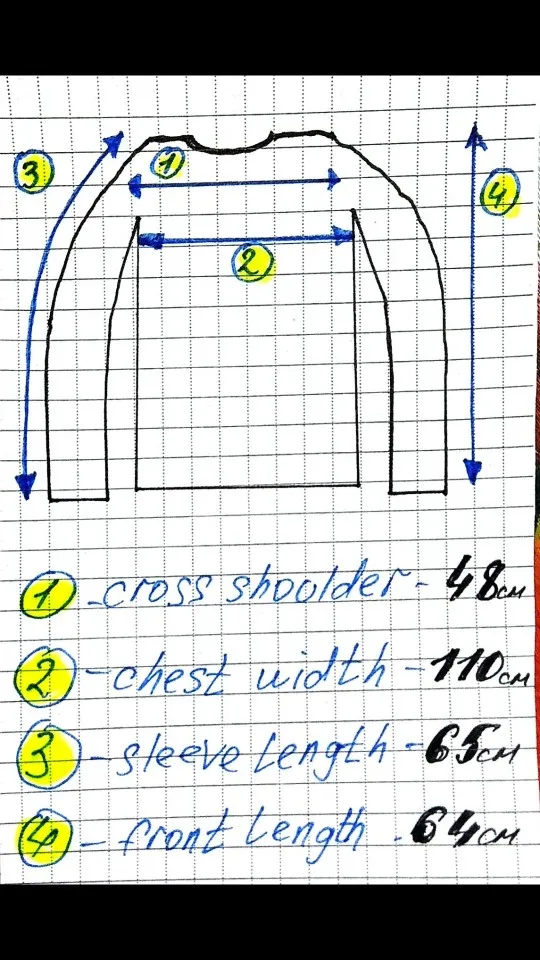 3
1
4
2
1 - cross shoolder - 48 см
2 - chest width - 110 см
3 - sleeve length - 65 см
4 - front length - 64 см